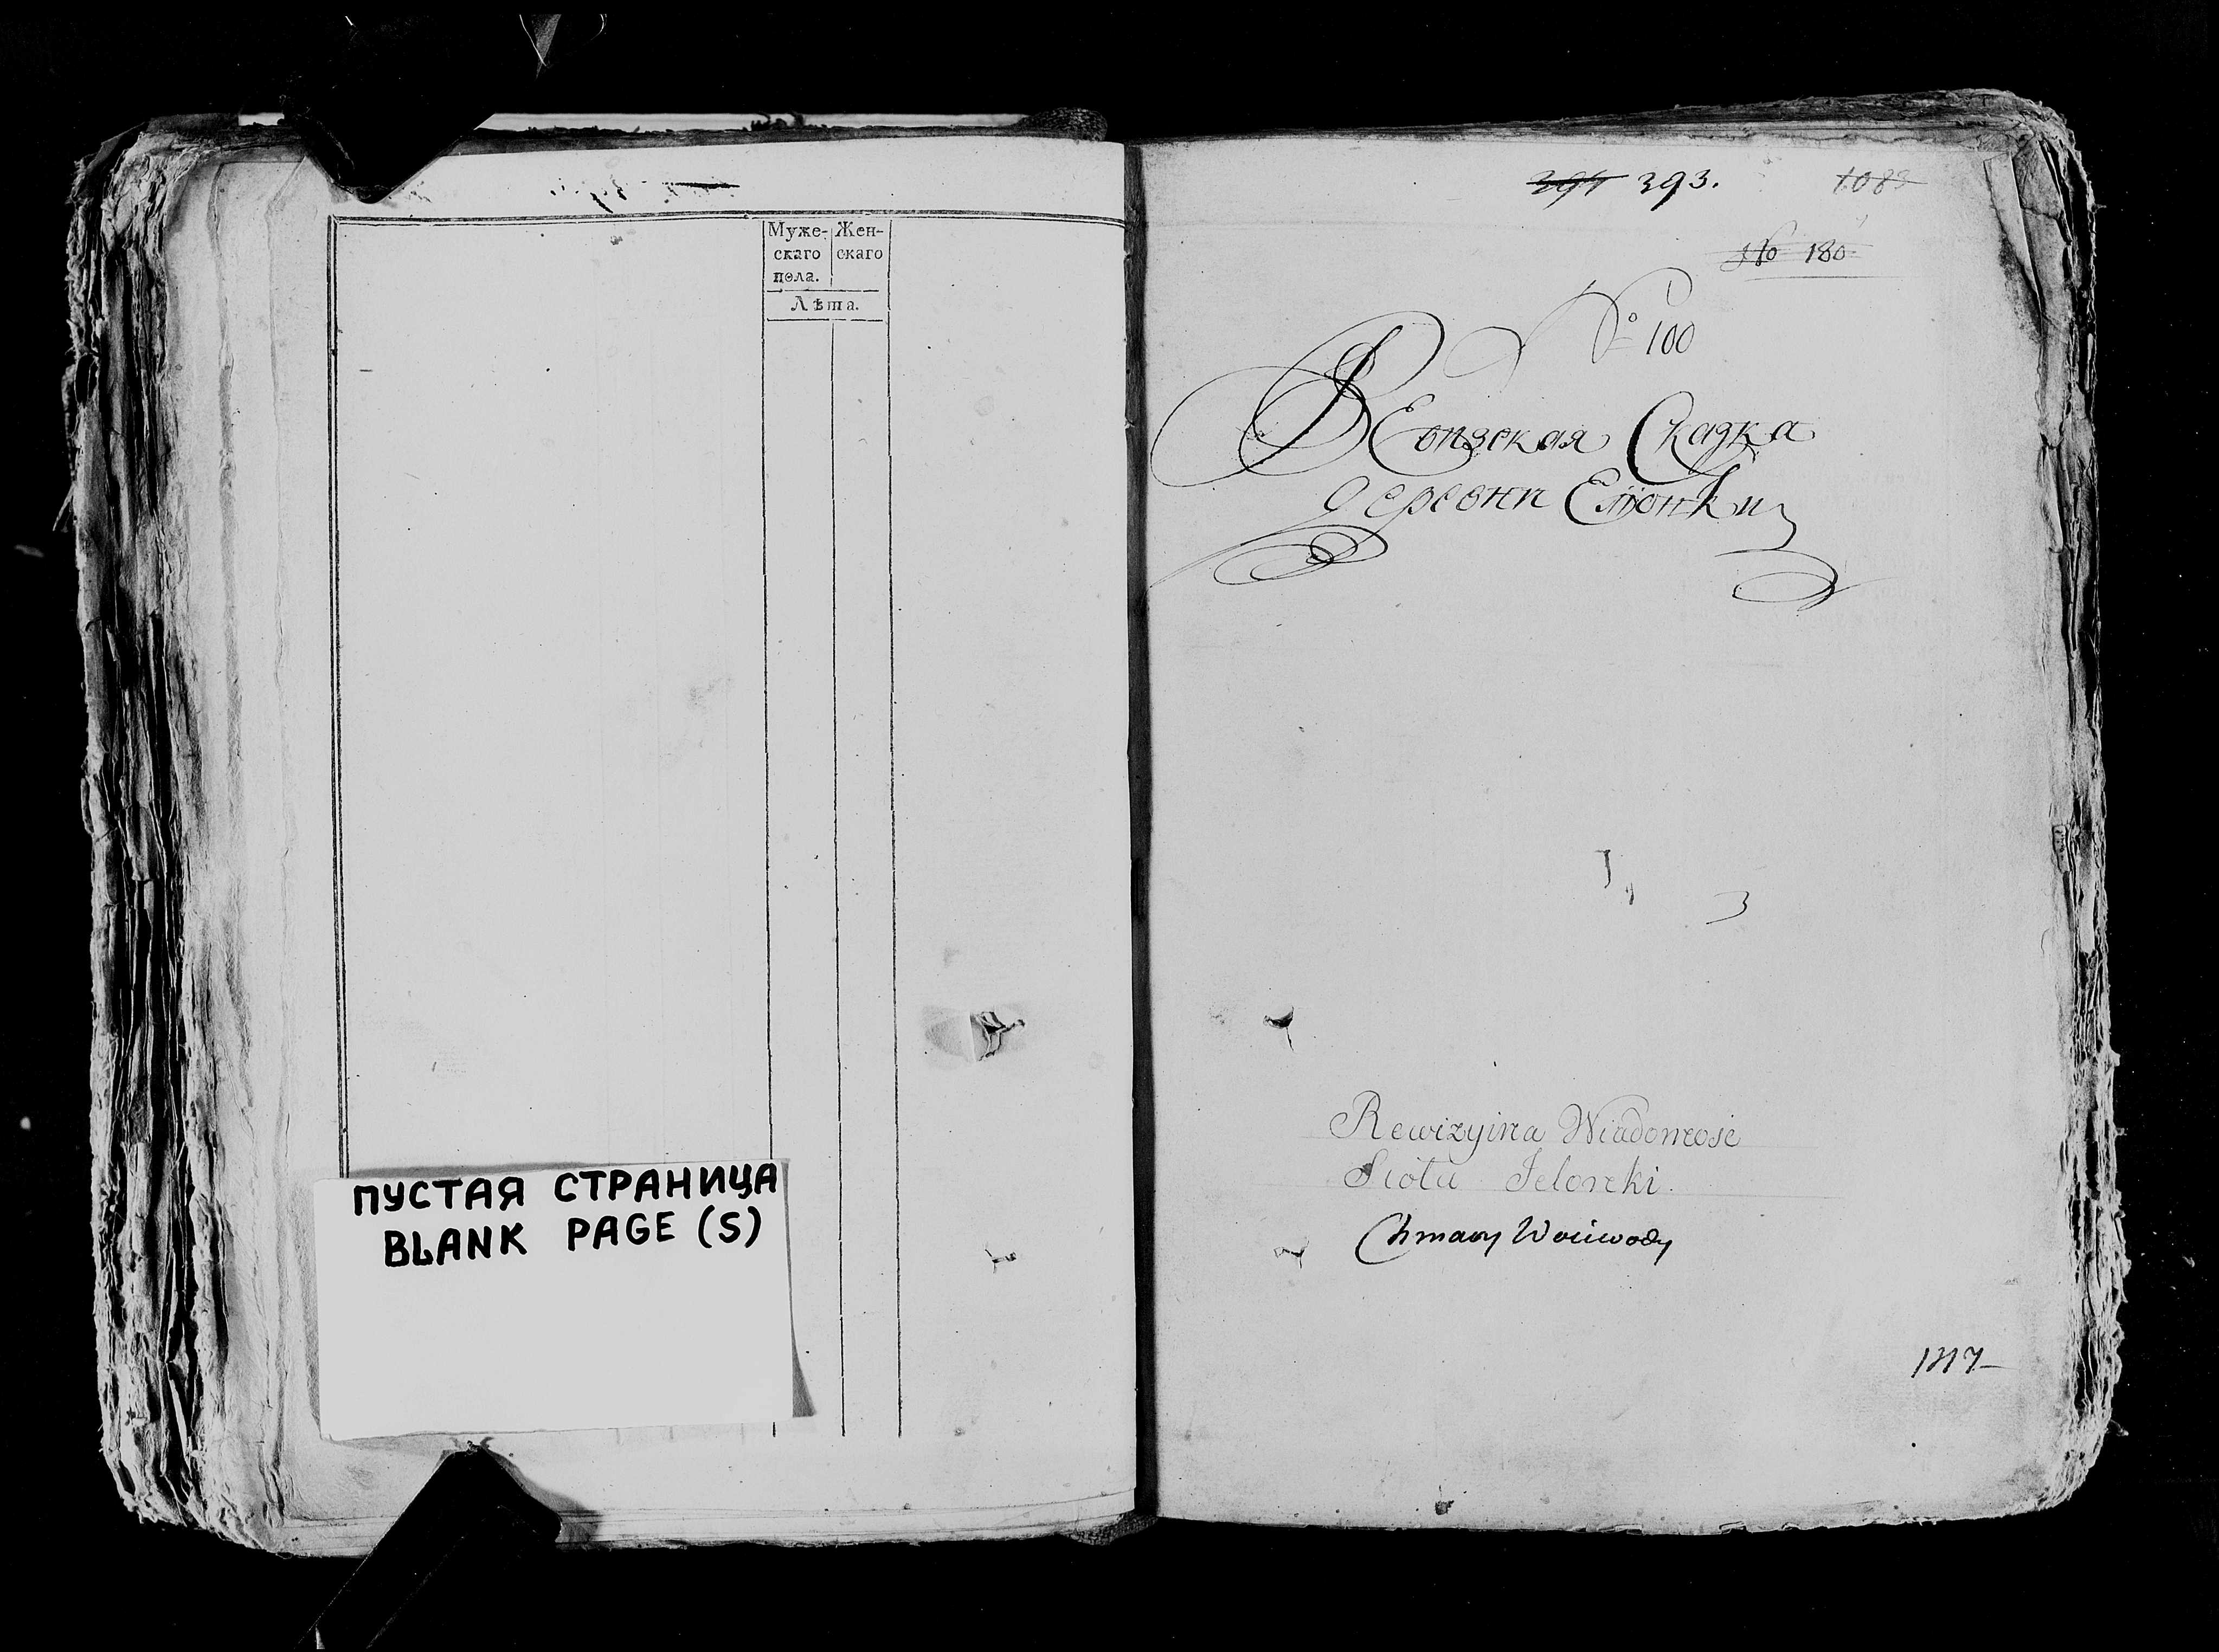 Муже- Жен-
скаго скаго
пола.
Лѣта.
ПУСТАЯ СТРАНИЦА
BLANK PAGE (S)
393. 1083
No 180
No 100
РЕвизская Сказка
деревни Елонки
Rewizyina Wiadomosc
Siola Jelonki
Woiewody